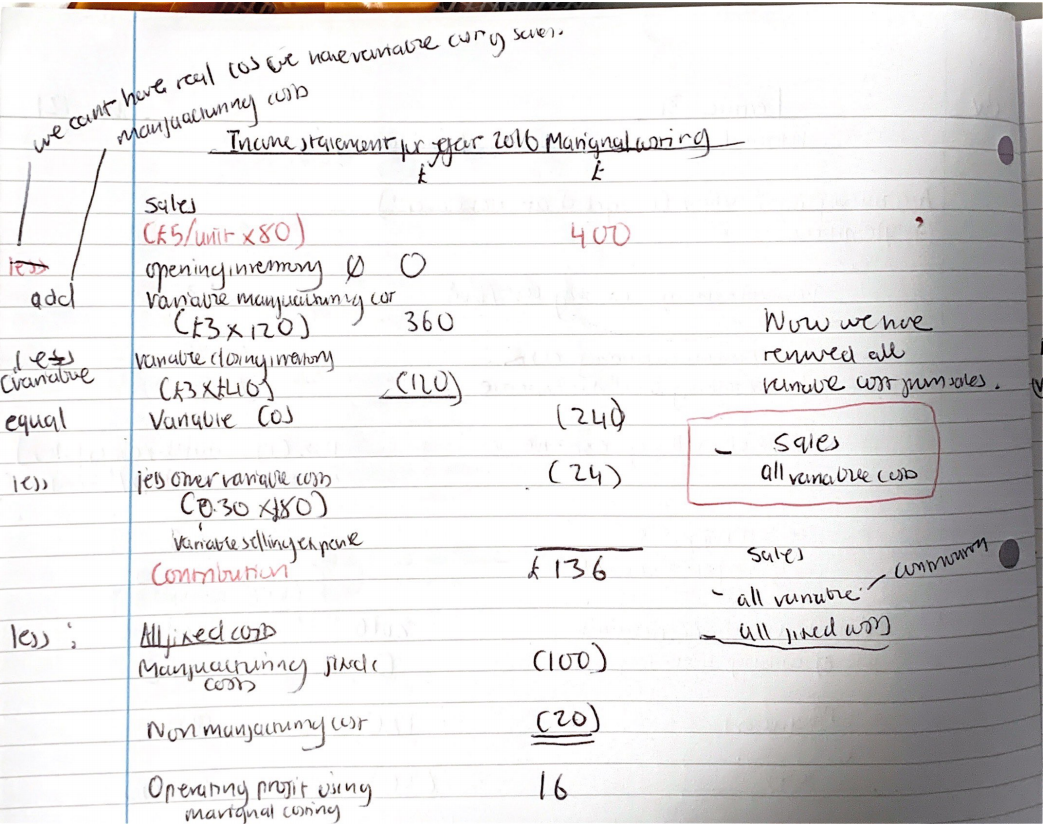 we cant have real cos we have variable cary sales.
manufacturing costs
Income statement for year 2016 Marignal costing
£ £
Sales
(£5/unit x 80) 400
less
opening inventory 0 0
add variable manufacturing cos
(£3 x 120) 360
less variable closing inventory
(variable (£3 x £40) (120)
equal Variable Cos (240)
less less other variable costs (24)
(0.30 x £80)
variable selling expense
Contribution £136
less : All fixed costs
Manufacturing fixed (100)
costs
Non manufacturing cost (20)
Operating profit using 16
marignal costing
Now we have
removed all
variable cost from sales.
- Sales
all variable costs
Sales
- all variable
- all fixed costs